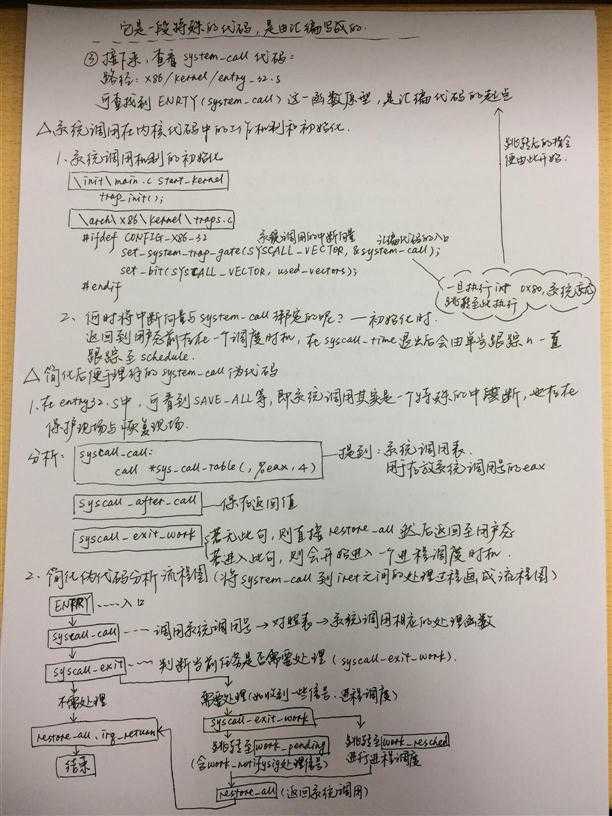 它是一段特殊的代码，是由汇编写成的.
③ 接下来，查看 system_call 代码：
路径：x86/kernel/entry_32.s
可查找到 ENRTY(system_call) 这一函数原型，是汇编代码的起点
△系统调用在内核代码中的工作机制和初始化.
跳转后的指令
便由此开始.
1. 系统调用机制的初始化
\init\main.c start_kernel
trap_init();
\arch\x86\kernel\traps.c
#ifdef CONFIG_X86_32
系统调用的中断向量
汇编代码的入口
set_system_trap_gate(SYSCALL_VECTOR, &system_call);
set_bit(SYSCALL_VECTOR, used_vectors);
#endif
一旦执行int 0x80，系统
跳转至此执行
2. 何时将中断向量与system_call绑定的呢？—初始化时.
返回到用户态前存在一个调度时机，在syscall_time退出后会由单步跟踪n一直
跟踪至schedule.
△简化后便于理解的system_call伪代码
1. 在entry32.S中，可看到SAVE_ALL等，即系统调用其实是一个特殊的中断，也存在
保护现场与恢复现场.
分析：
syscall_call:
call *sys_call_table(,%eax,4)
提到：系统调用表.
用于存放系统调用号的eax
syscall_after_call
保存返回值
syscall_exit_work
若无此句，则直接restore_all 然后返回至用户态
若进入此句，则会开始进入一个进程调度时机.
2. 简化伪代码分析流程图 (将system_call到iret之间的处理过程画成流程图)
ENRRY ----入口
syscall_call ---- 调用系统调用号→对照表→系统调用相应的处理函数
syscall_exit ---- 判断当前任务是否需要处理 (syscall_exit_work).
不需处理
需要处理(如收到一些信号、进程调度)
syscall_exit_work
restore_all、irq_return
跳转至work_pending
(含work_notifysig处理信号)
跳转至work_resched
进行进程调度
结束
restore_all (返回系统调用)